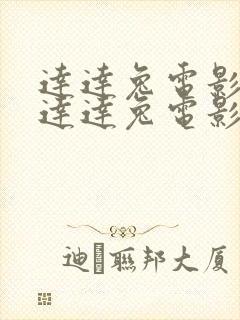 達達兔電影
達達兔電影
迪聯邦大厦